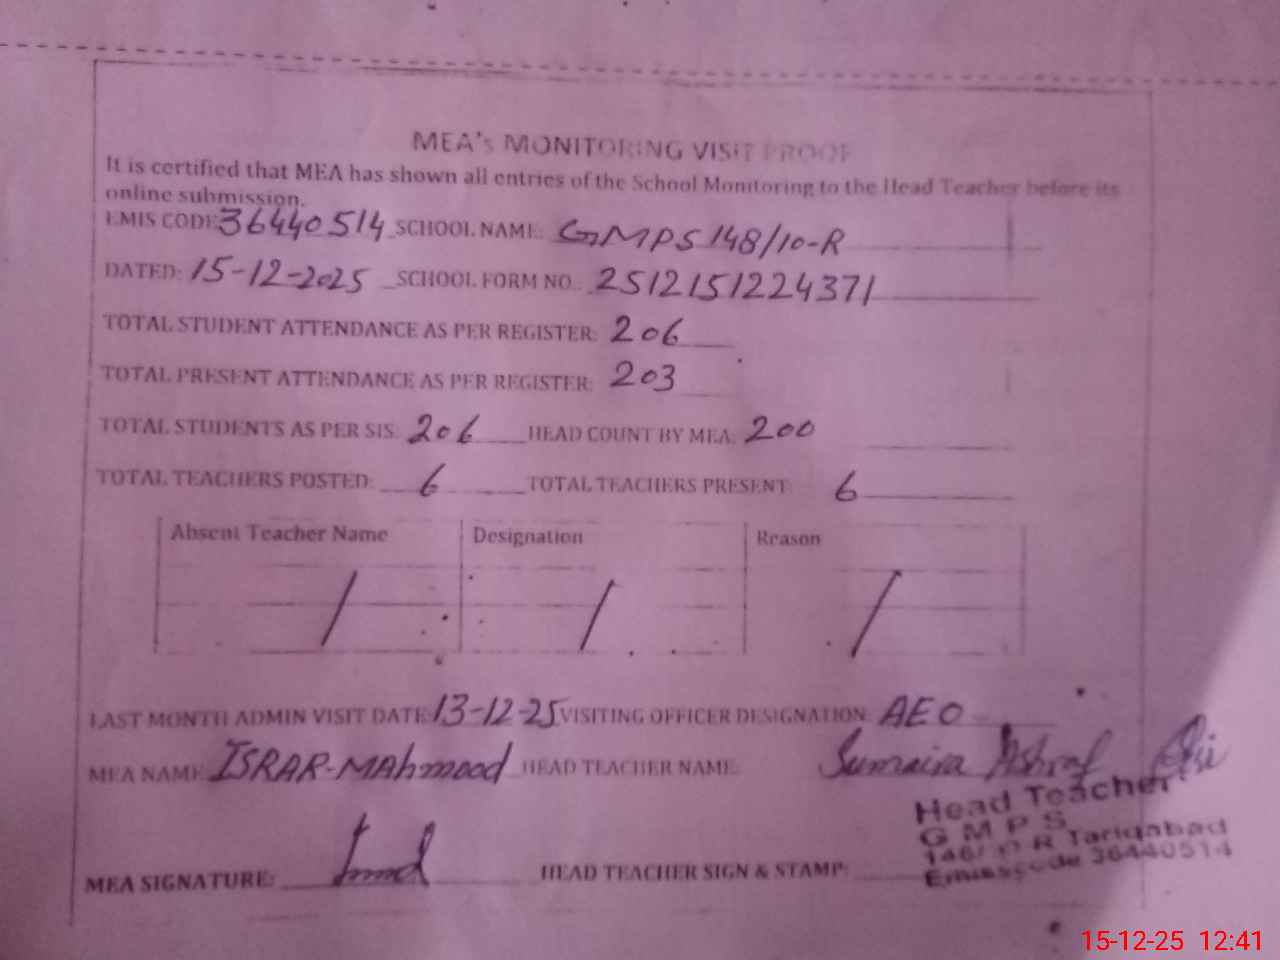 MEA's MONITORING VISIT PROOF
It is certified that MEA has shown all entries of the School Monitoring to the Head Teacher before its
online submission.
EMIS CODE: 36440514 SCHOOL NAME: GMPS 148/10-R
DATED: 15-12-2025 SCHOOL FORM NO.: 2512151224371
TOTAL STUDENT ATTENDANCE AS PER REGISTER: 206
TOTAL PRESENT ATTENDANCE AS PER REGISTER: 203
TOTAL STUDENTS AS PER SIS: 206 HEAD COUNT BY MEA: 200
TOTAL TEACHERS POSTED: 6 TOTAL TEACHERS PRESENT: 6
Absent Teacher Name Designation Reason
/ / /
LAST MONTH ADMIN VISIT DATE: 13-12-25 VISITING OFFICER DESIGNATION: AEO
MEA NAME: ISRAR-MAhmood HEAD TEACHER NAME: Sumaira Ashraf
Head Teacher
G M P S
MEA SIGNATURE: HEAD TEACHER SIGN & STAMP:
R Tariqabad
Emiescode 36440514
15-12-25 12:41